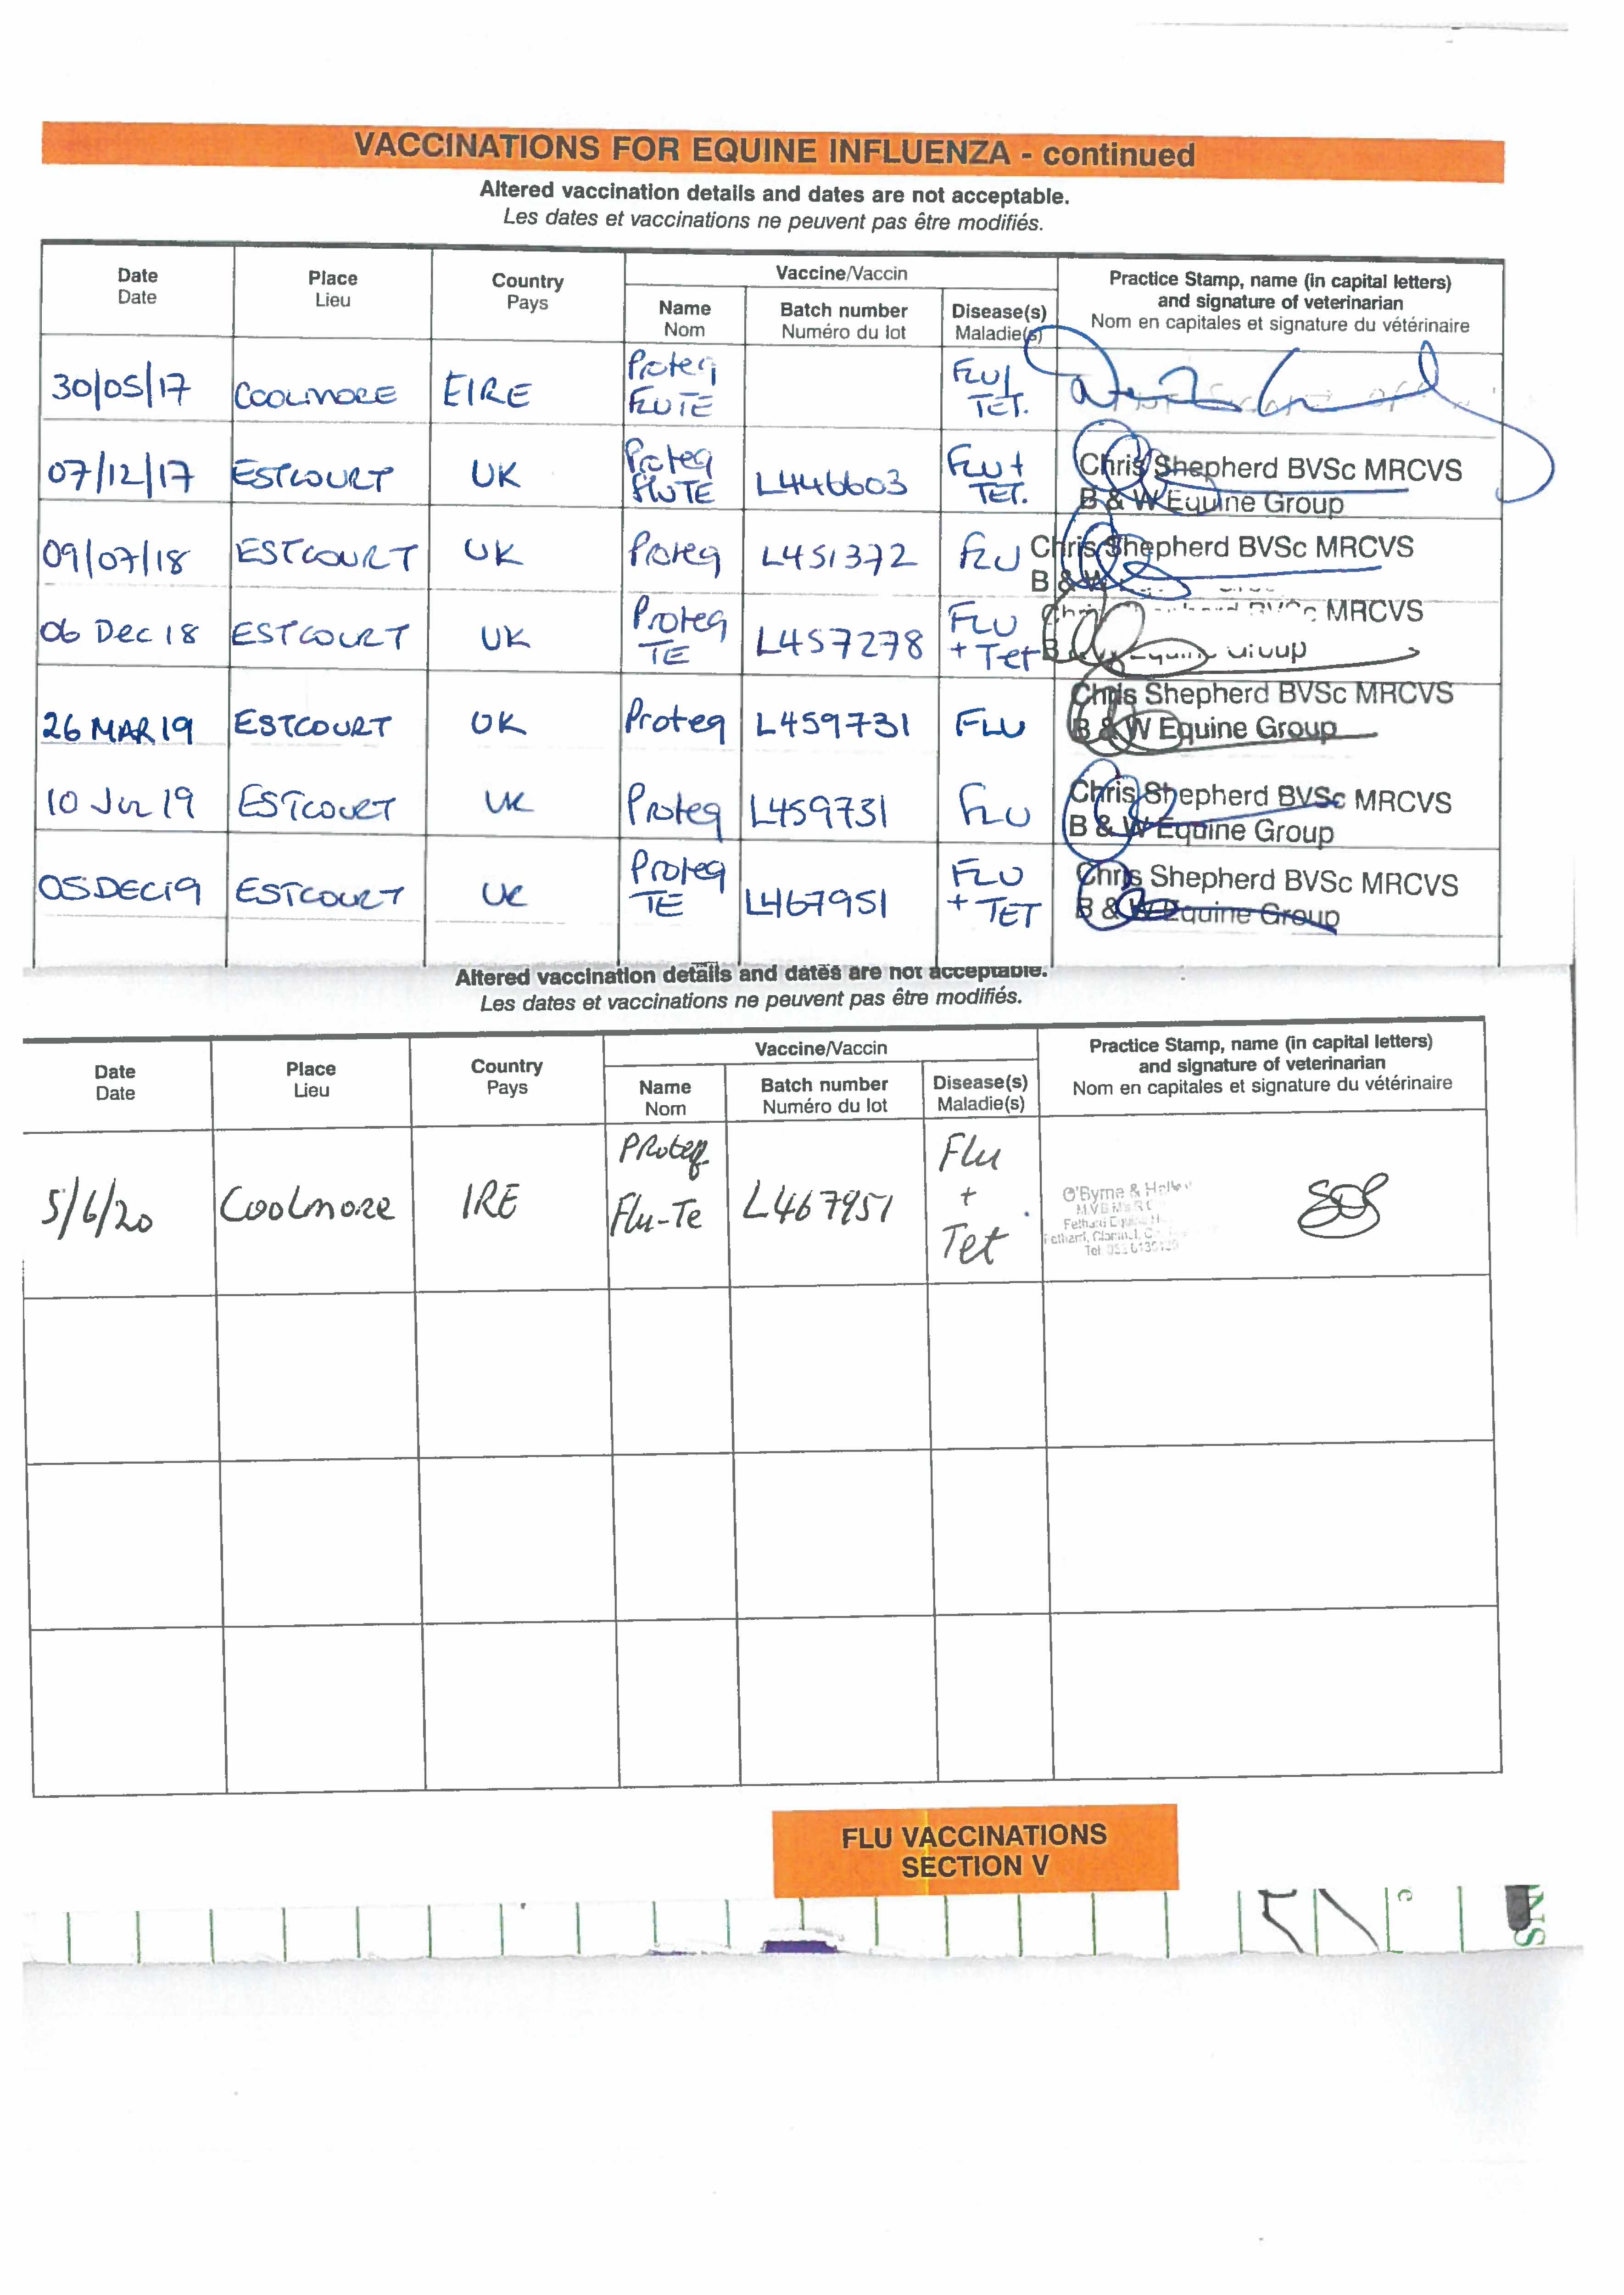 VACCINATIONS FOR EQUINE INFLUENZA - continued
Altered vaccination details and dates are not acceptable.
Les dates et vaccinations ne peuvent pas être modifiés.
Date Place Country Vaccine/Vaccin Practice Stamp, name (in capital letters)
Date Lieu Pays Name Batch number Disease(s) and signature of veterinarian
Nom Numéro du lot Maladie(s) Nom en capitales et signature du vétérinaire
30/05/17 COOLMORE EIRE Proteq FLUTE FLU/ TET.
07/12/17 ESTCOURT UK Proteq FLUTE L446603 FLU + TET. Chris Shepherd BVSc MRCVS
B & W Equine Group
09/07/18 ESTCOURT UK Proteq L451372 FLU Chris Shepherd BVSc MRCVS
B & W
06 Dec 18 ESTCOURT UK Proteq TE L457278 FLU + Tet MRCVS
26 MAR 19 ESTCOURT UK Proteq L459731 FLU Chris Shepherd BVSc MRCVS
B & W Equine Group
10 JUL 19 ESTCOURT UK Proteq L459731 FLU Chris Shepherd BVSc MRCVS
B & W Equine Group
05DEC19 ESTCOURT UK Proteq TE L467951 FLU + TET Chris Shepherd BVSc MRCVS
B & W Equine Group
Altered vaccination details and dates are not acceptable.
Les dates et vaccinations ne peuvent pas être modifiés.
Date Place Country Vaccine/Vaccin Practice Stamp, name (in capital letters)
Date Lieu Pays Name Batch number Disease(s) and signature of veterinarian
Nom Numéro du lot Maladie(s) Nom en capitales et signature du vétérinaire
5/6/20 Coolmore IRE Proteq Flu-Te L467951 Flu + Tet O'Byrne &
FLU VACCINATIONS
SECTION V